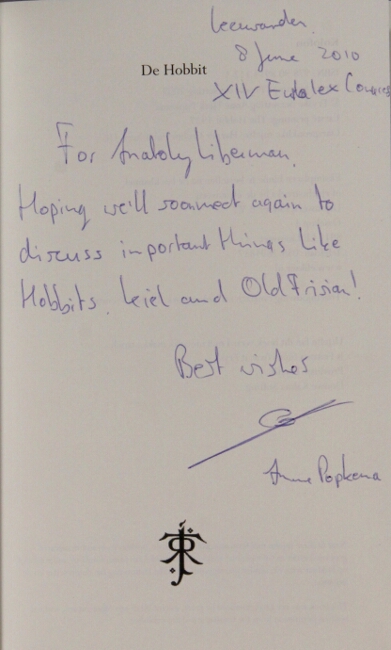 Leeuwarden
8 June 2010
De Hobbit
XIV Euralex Congress
For Anatoly Liberman,
Hoping we'll soon meet again to
discuss important things like
Hobbits, and Old Frisian!
Best wishes
Anne Popkema